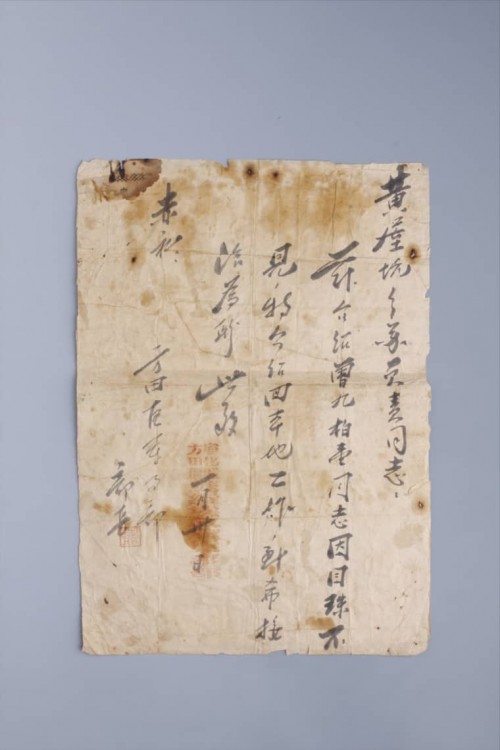 黄坑乡苏负责同志：
兹介绍曾九柏同志因目珠不
见，特介绍回本地工作，到希接
洽为盼 此致
赤礼
方田区部
部长
一月廿日